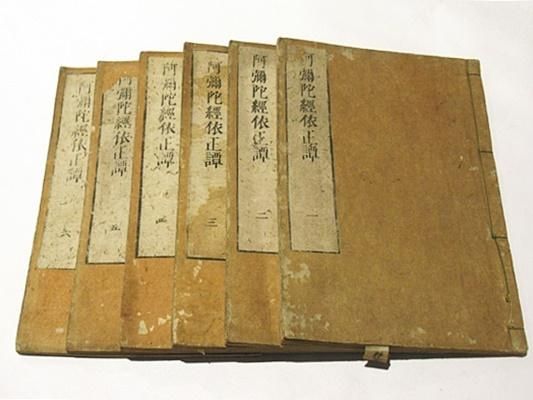 阿彌陀經依正譚 一
阿彌陀經依正譚 二
阿彌陀經依正譚 三
阿彌陀經依正譚 四
阿彌陀經依正譚 五
阿彌陀經依正譚 六